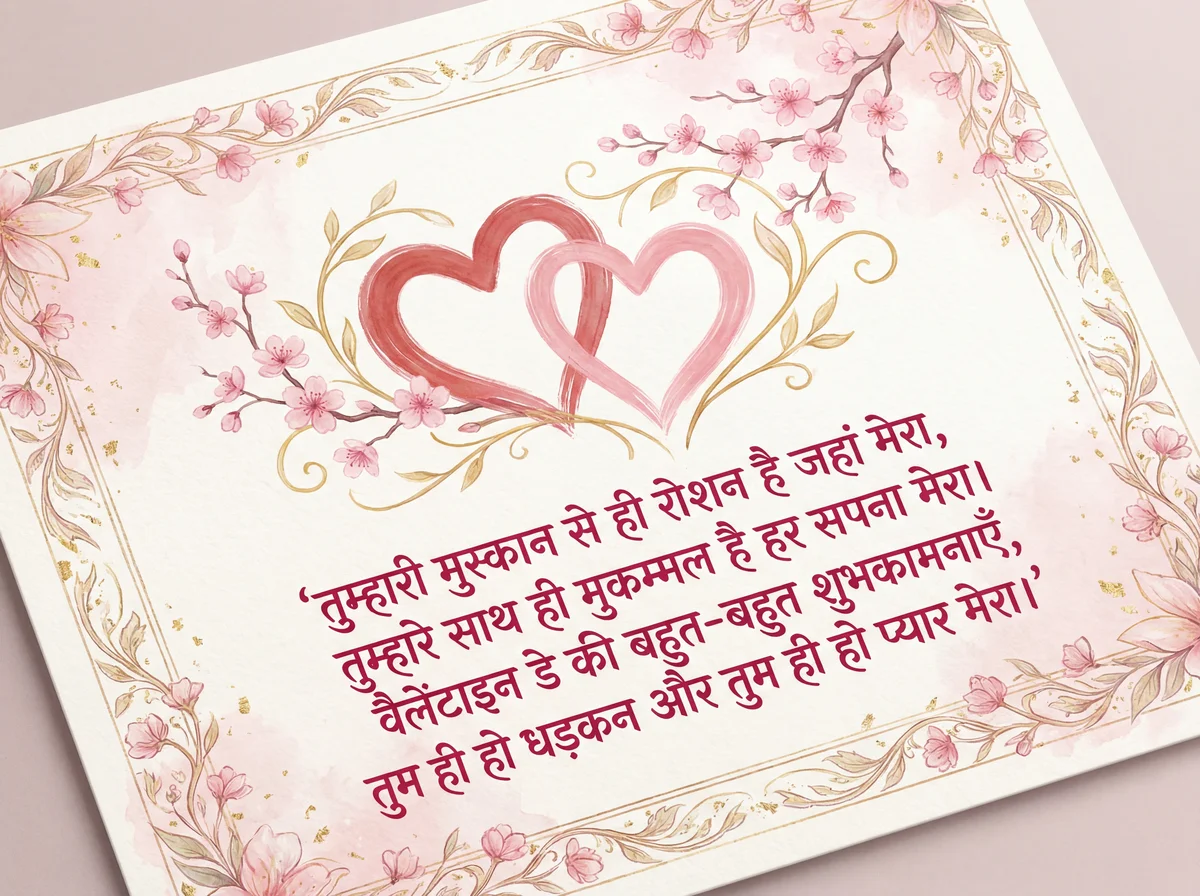 ‘तुम्हारी मुस्कान से ही रोशन है जहां मेरा,
तुम्हारे साथ ही मुकम्मल है हर सपना मेरा।
वैलेंटाइन डे की बहुत-बहुत शुभकामनाएँ,
तुम ही हो धड़कन और तुम ही हो प्यार मेरा।’